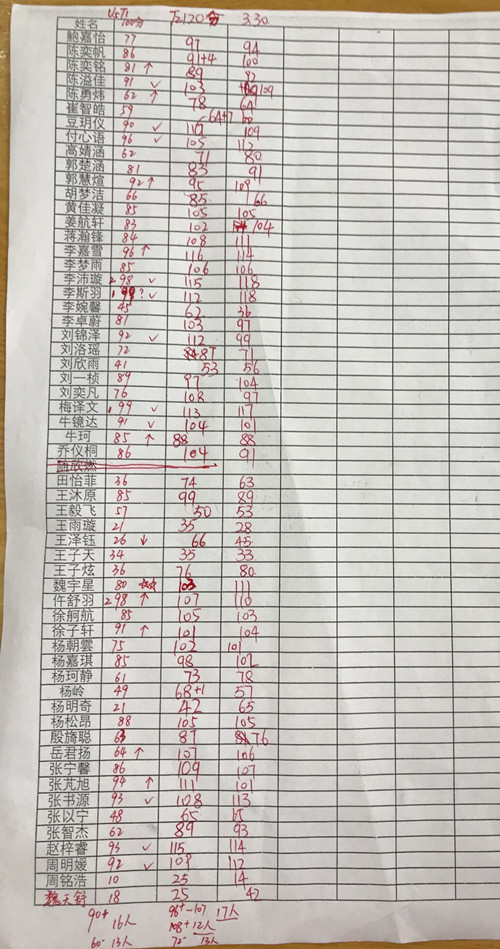 姓名 U5T1 100分 T2120分 3.30
鲍嘉怡 77 97 94
陈奕帆 86 91+4 100
陈奕铭 81 ↑ 89 82
陈溢佳 91 ✓ 103 109
陈勇炜 62 ↑ 78 64
崔智皓 59 64+7 60
豆玥仪 90 ✓ 110 109
付心语 96 ✓ 105 113
高婧涵 62 71 80
郭楚涵 81 83 91
郭慧煊 92 ↑ 95 109
胡梦洁 66 85 66
黄佳凝 85 105 105
姜航轩 83 102 104
蒋瀚锋 84 108 111
李嘉雪 96 ↑ 116 114
李梦雨 85 106 106
李沛璇 298 ✓ 115 118
李斯羽 ✓ 112 118
李婉馨 45 62 36
李卓蔚 81 103 97
刘锦泽 92 ✓ 112 99
刘洛瑶 72 87 71
刘欣雨 41 53 56
刘一桢 89 97 104
刘奕凡 76 108 97
梅译文 99 ✓ 113 117
牛镜达 91 ✓ 104 101
牛珂 85 ↑ 88 88
乔仪桐 86 104 91
田怡菲 36 74 63
王沐原 85 99 89
王毅飞 57 50 53
王雨璇 21 35 28
王泽钰 26 ↓ 66 45
王子天 34 35 33
王子炫 36 76 80
魏宇星 80 ☆☆ 103 111
仵舒羽 298 ↑ 107 110
徐舸航 85 105 103
徐子轩 91 ↑ 101 104
杨朝雲 75 102 101
杨嘉琪 85 98 102
杨珂静 61 73 78
杨岭 49 68+1 57
杨明奇 21 42 65
杨松昂 88 105 105
殷旖聪 63 87 76
岳君扬 64 ↑ 107 106
张宁馨 86 109 107
张芃旭 94 ↑ 111 101
张书源 93 ✓ 108 113
张以宁 48 65 65
张智杰 62 89 93
赵梓睿 93 ✓ 115 114
周明媛 92 ✓ 108 112
周铭浩 10 25 14
魏天舒 18 25 42
90+ 16人 96+-107 17人
108+ 12人
60- 13人 72- 13人